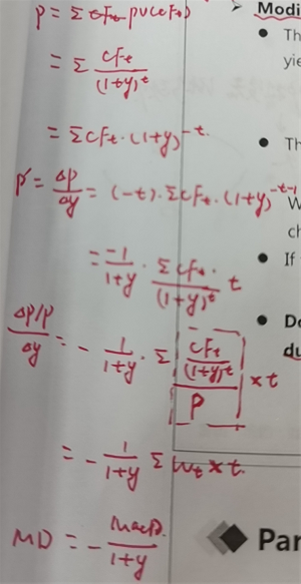 P = Σ CFt PV(CFt)
= Σ CFt / (1+y)^t
= Σ CFt · (1+y)^-t
P' = ΔP/Δy = (-t) · Σ CFt · (1+y)^-t-1
= -1/1+y · Σ CFt · / (1+y)^t t
ΔP/P / Δy = - 1/1+y · Σ CFt/(1+y)^t / P × t
= - 1/1+y Σ Wt × t.
MD = - MacD. / 1+y
Modi
Th
yie
Th
W
ch
If
De
du
Par